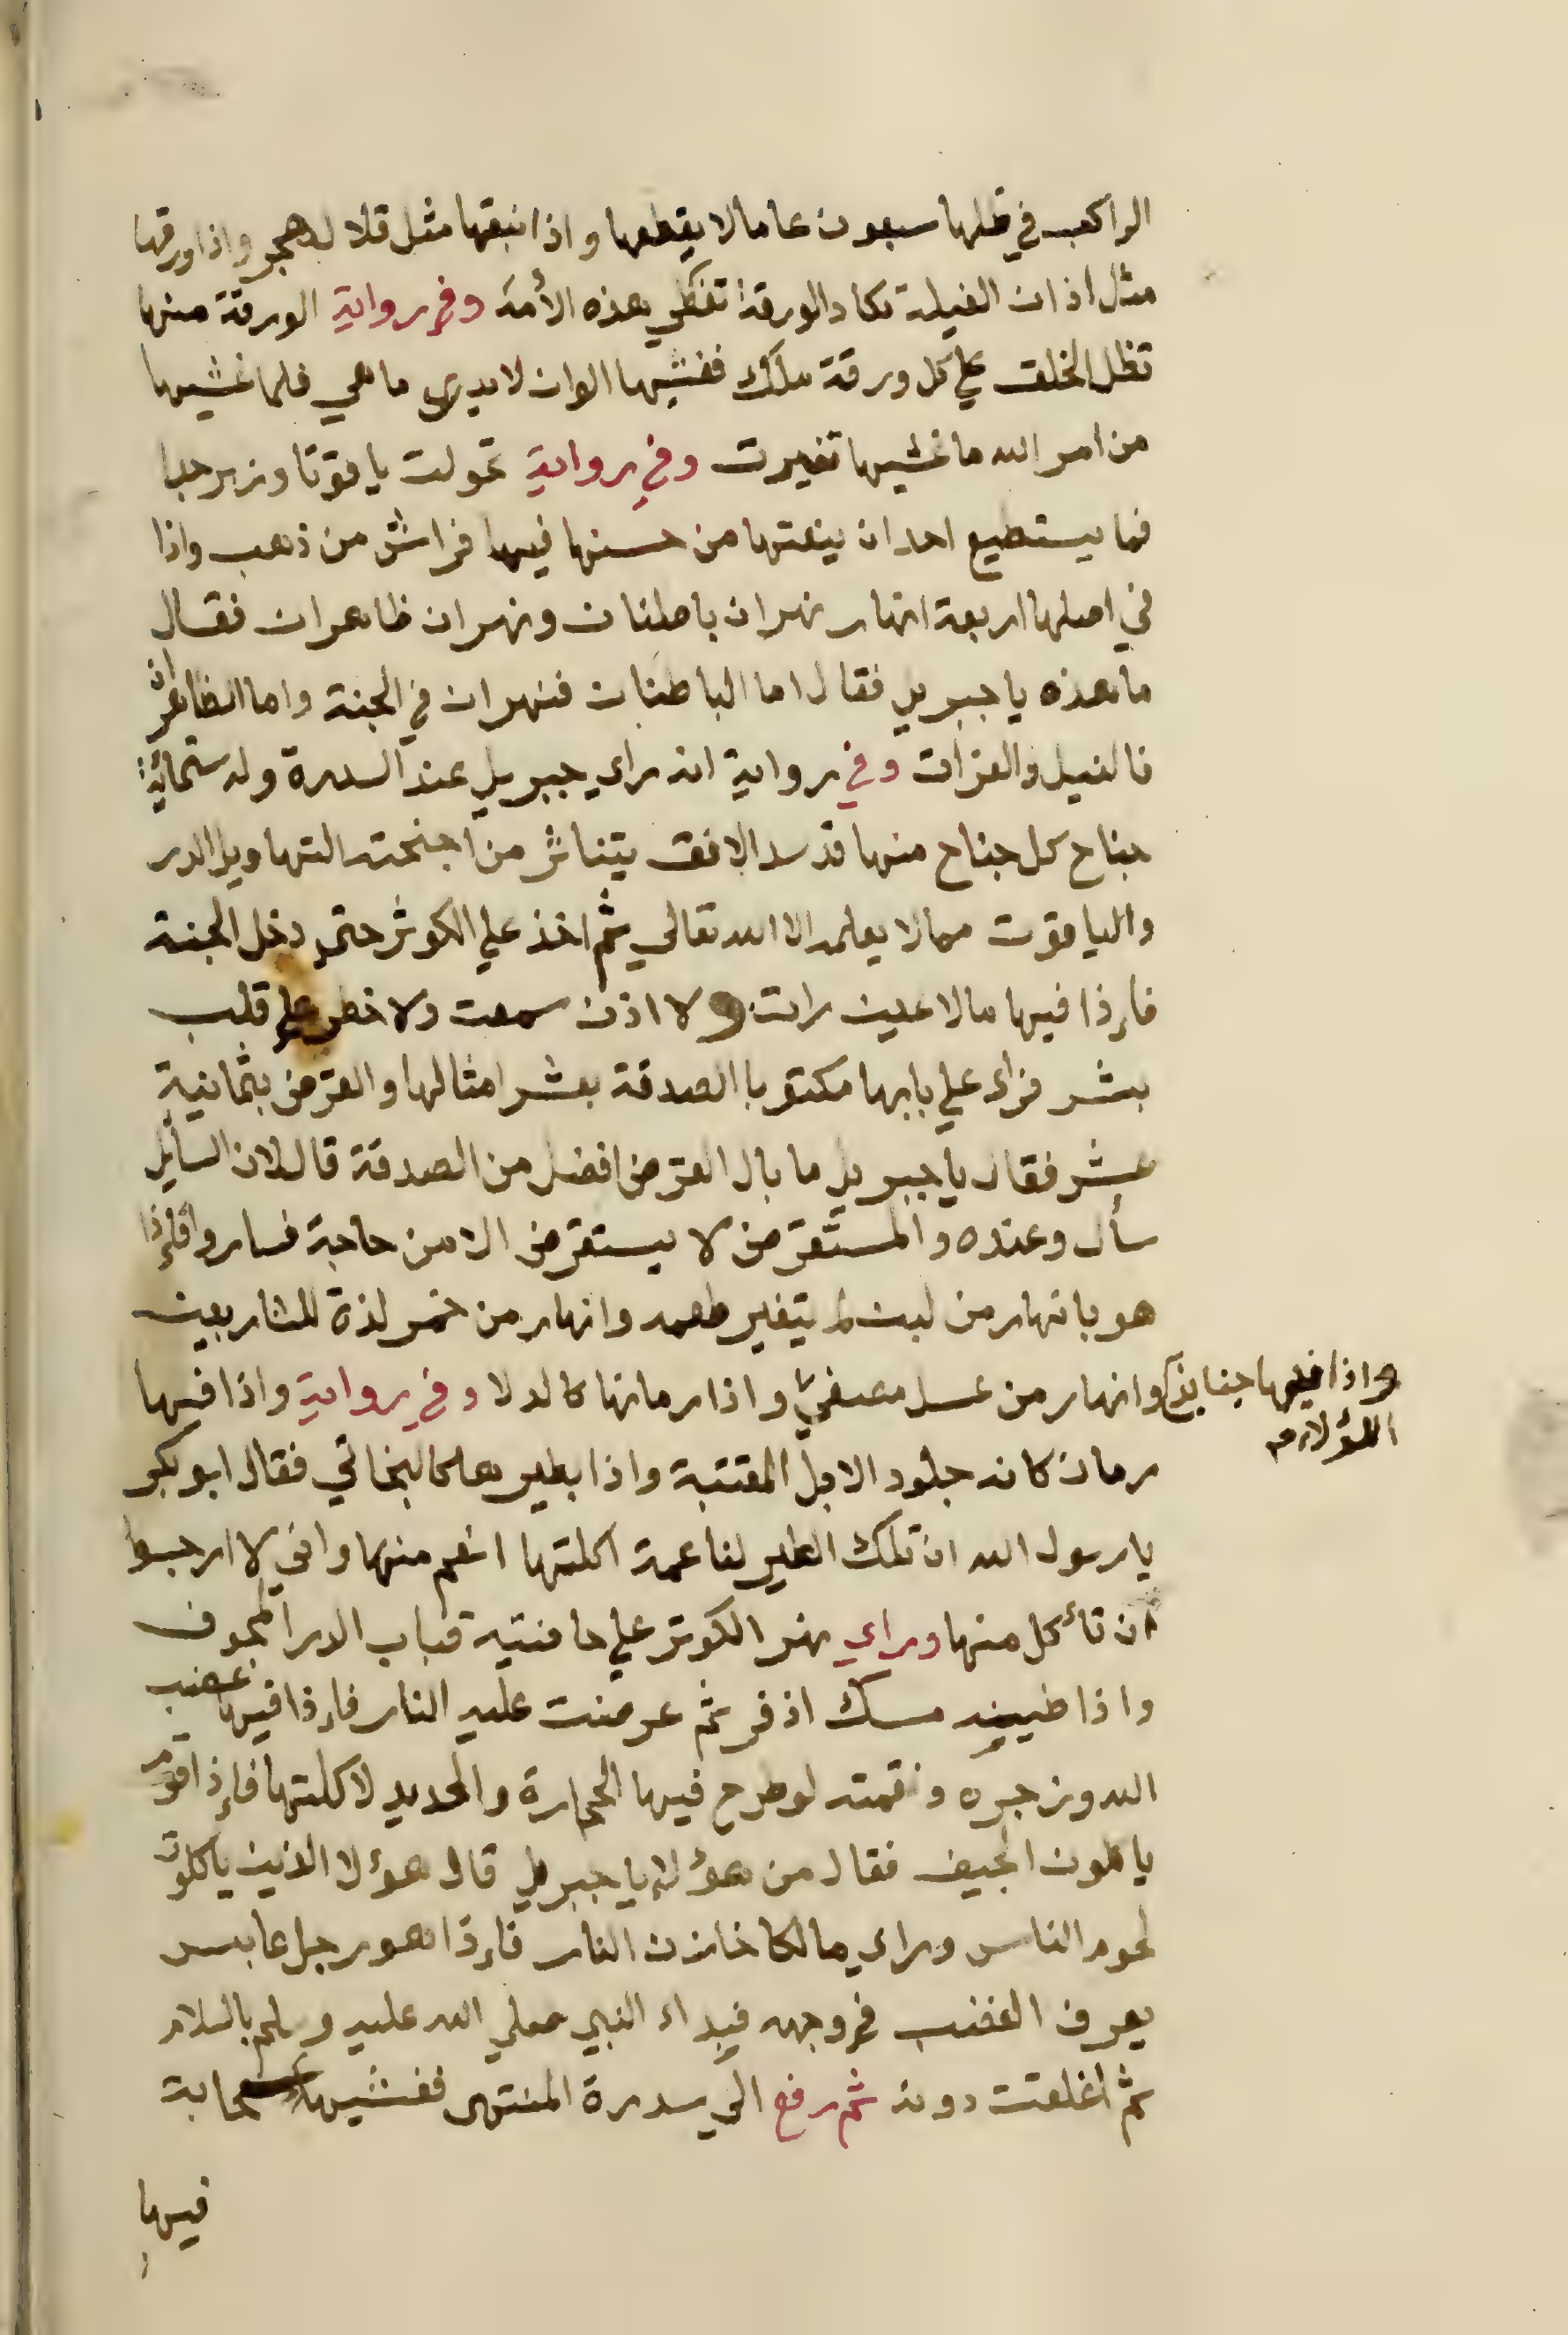 الراكب في ظلها سبعون عاما لا يقطعها واذا نبقها مثل قلال هجر واذا ورقها
مثل اذان الفيلة تكاد الورقة تغطي هذه الأمة وفي رواية الورقة منها
تظل الخلق علي كل ورقة ملك فغشيها الوان لا يدري ما هي فلما غشيها
من امر الله ما غشيها تغيرت وفي رواية تحولت ياقوتا وزبرجدا
فما يستطيع احد ان ينعتها من حسنها فيها فراش من ذهب واذا
في اصلها اربعة انهار نهران باطنان ونهران ظاهران فقال
ما هذه يا جبريل فقال اما الباطنان فنهران في الجنة واما الظاهران
فالنيل والفرات وفي رواية انه راي جبريل عند السدرة وله ستمائة
جناح كل جناح منها قد سد الافق يتناثر من اجنحته التهاويل الدر
والياقوت مما لا يعلمه الا الله تعالي ثم اخذ علي الكوثر حتي دخل الجنة
فإذا فيها مالا عين رات ولا اذن سمعت ولا خطر علي قلب
بشر فراى علي بابها مكتوبا الصدقة بعشر امثالها والقرض بثمانية
عشر فقال يا جبريل ما بال القرض افضل من الصدقة قال لان السائل
سأل وعنده والمستقرض لا يستقرض الا من حاجة فساروا فإذا
هو بانهار من لبن لم يتغير طعمه وانهار من خمر لذة للشاربين
وانهار من عسل مصفي واذا رمانها كالدلا وفي رواية واذا فيها
واذا فيها جنابذ
اللؤلؤ
رمان كانه جلود الابل المقتبة واذا بطيرها كالبخاتي فقال ابو بكر
يا رسول الله ان تلك الطير لناعمة اكلتها انعم منها واني لا ارجوا
ان تأكل منها وراي نهر الكوثر علي حافتيه قباب الدر المجوف
واذا طينه مسك اذفر ثم عرضت عليه النار فإذا فيها غضب
الله وزجره ونقمته لو طرح فيها الحجارة والحديد لاكلتها فإذا قوم
ياكلون الجيف فقال من هؤلاء يا جبريل قال هؤلا الذين ياكلون
لحوم الناس وراي مالكا خازن النار فإذا هو رجل عابس
يعرف الغضب في وجهه فبداء النبي صلي الله عليه وسلم بالسلام
ثم اغلقت دونه ثم رفع الي سدرة المنتهى فغشيها سحابة
فيها